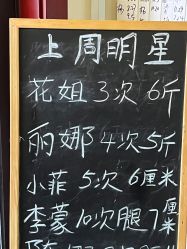 上周明星
花姐3次6斤
丽娜4次5斤
小菲5次6厘米
李蒙10次腿7厘米